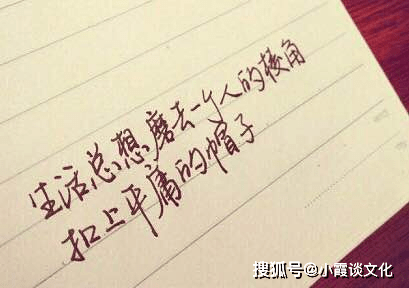 生活总想磨去一个人的棱角
扣上平庸的帽子
搜狐号@小霞谈文化